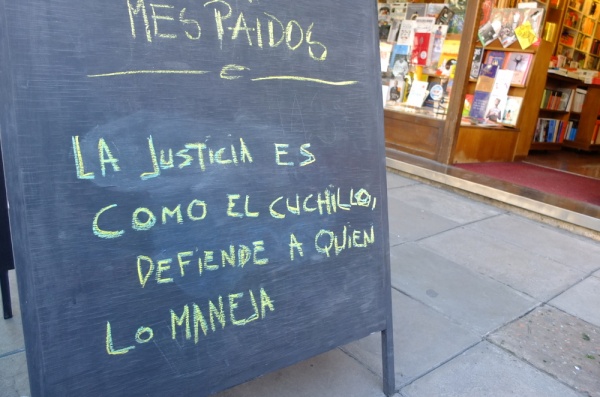 MES PAIDOS
LA JUSTICIA ES
COMO EL CUCHILLO,
DEFIENDE A QUIEN
LO MANEJA